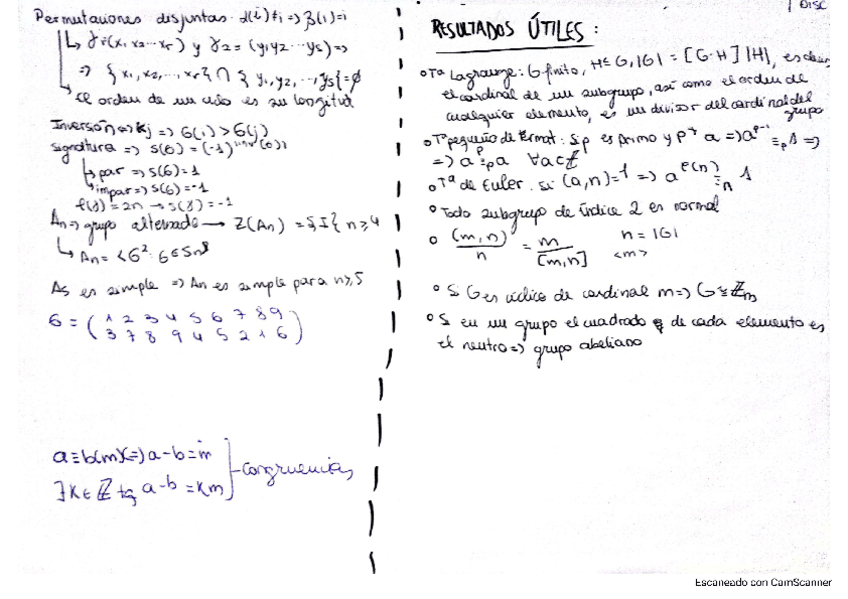 Permutaciones disjuntas. α(i)≠i => β(i)=i
↳ γ₁=(x₁ x₂ ... xᵣ) y γ₂ = (y₁ y₂ ... yₛ) =>
=> {x₁, x₂, ..., xᵣ} ∩ {y₁, y₂, ..., yₛ} = ∅
↳ El orden de un ciclo es su longitud
Inversión => i<j => σ(i) > σ(j)
signatura => s(σ) = (-1)
↳ par => s(σ)=1
↳ impar => s(σ)=-1
l(γ) = 2n → s(γ) = -1
An => grupo alternado → Z(An) = {I} n≥4
↳ An = <σ² : σ ∈ Sn>
A5 es simple => An es simple para n≥5
σ = ( 1 2 3 4 5 6 7 8 9
3 7 8 9 4 5 2 1 6 )
a≡b(m) <=> a-b=ṁ
∃K∈ℤ tq a-b = Km
congruencias
DISC
RESULTADOS ÚTILES:
Tª Lagrange: G finito, H≤G, |G| = [G:H] |H|, es decir
el cardinal de un subgrupo, así como el orden de
cualquier elemento, es un divisor del cardinal del
grupo
Tª pequeño de Fermat: Si p es primo y p∤a => a^(p-1) ≡ₚ 1 =>
=> a^p ≡ₚ a ∀a∈ℤ
Tª de Euler. Si (a,n)=1 => a^φ(n) ≡ₙ 1
Todo subgrupo de índice 2 es normal
(m,n)/n = m/[m,n] n = |G|
<m>
Si G es cíclico de cardinal m => G≅ℤm
Si en un grupo el cuadrado de cada elemento es
el neutro => grupo abeliano
Escaneado con CamScanner